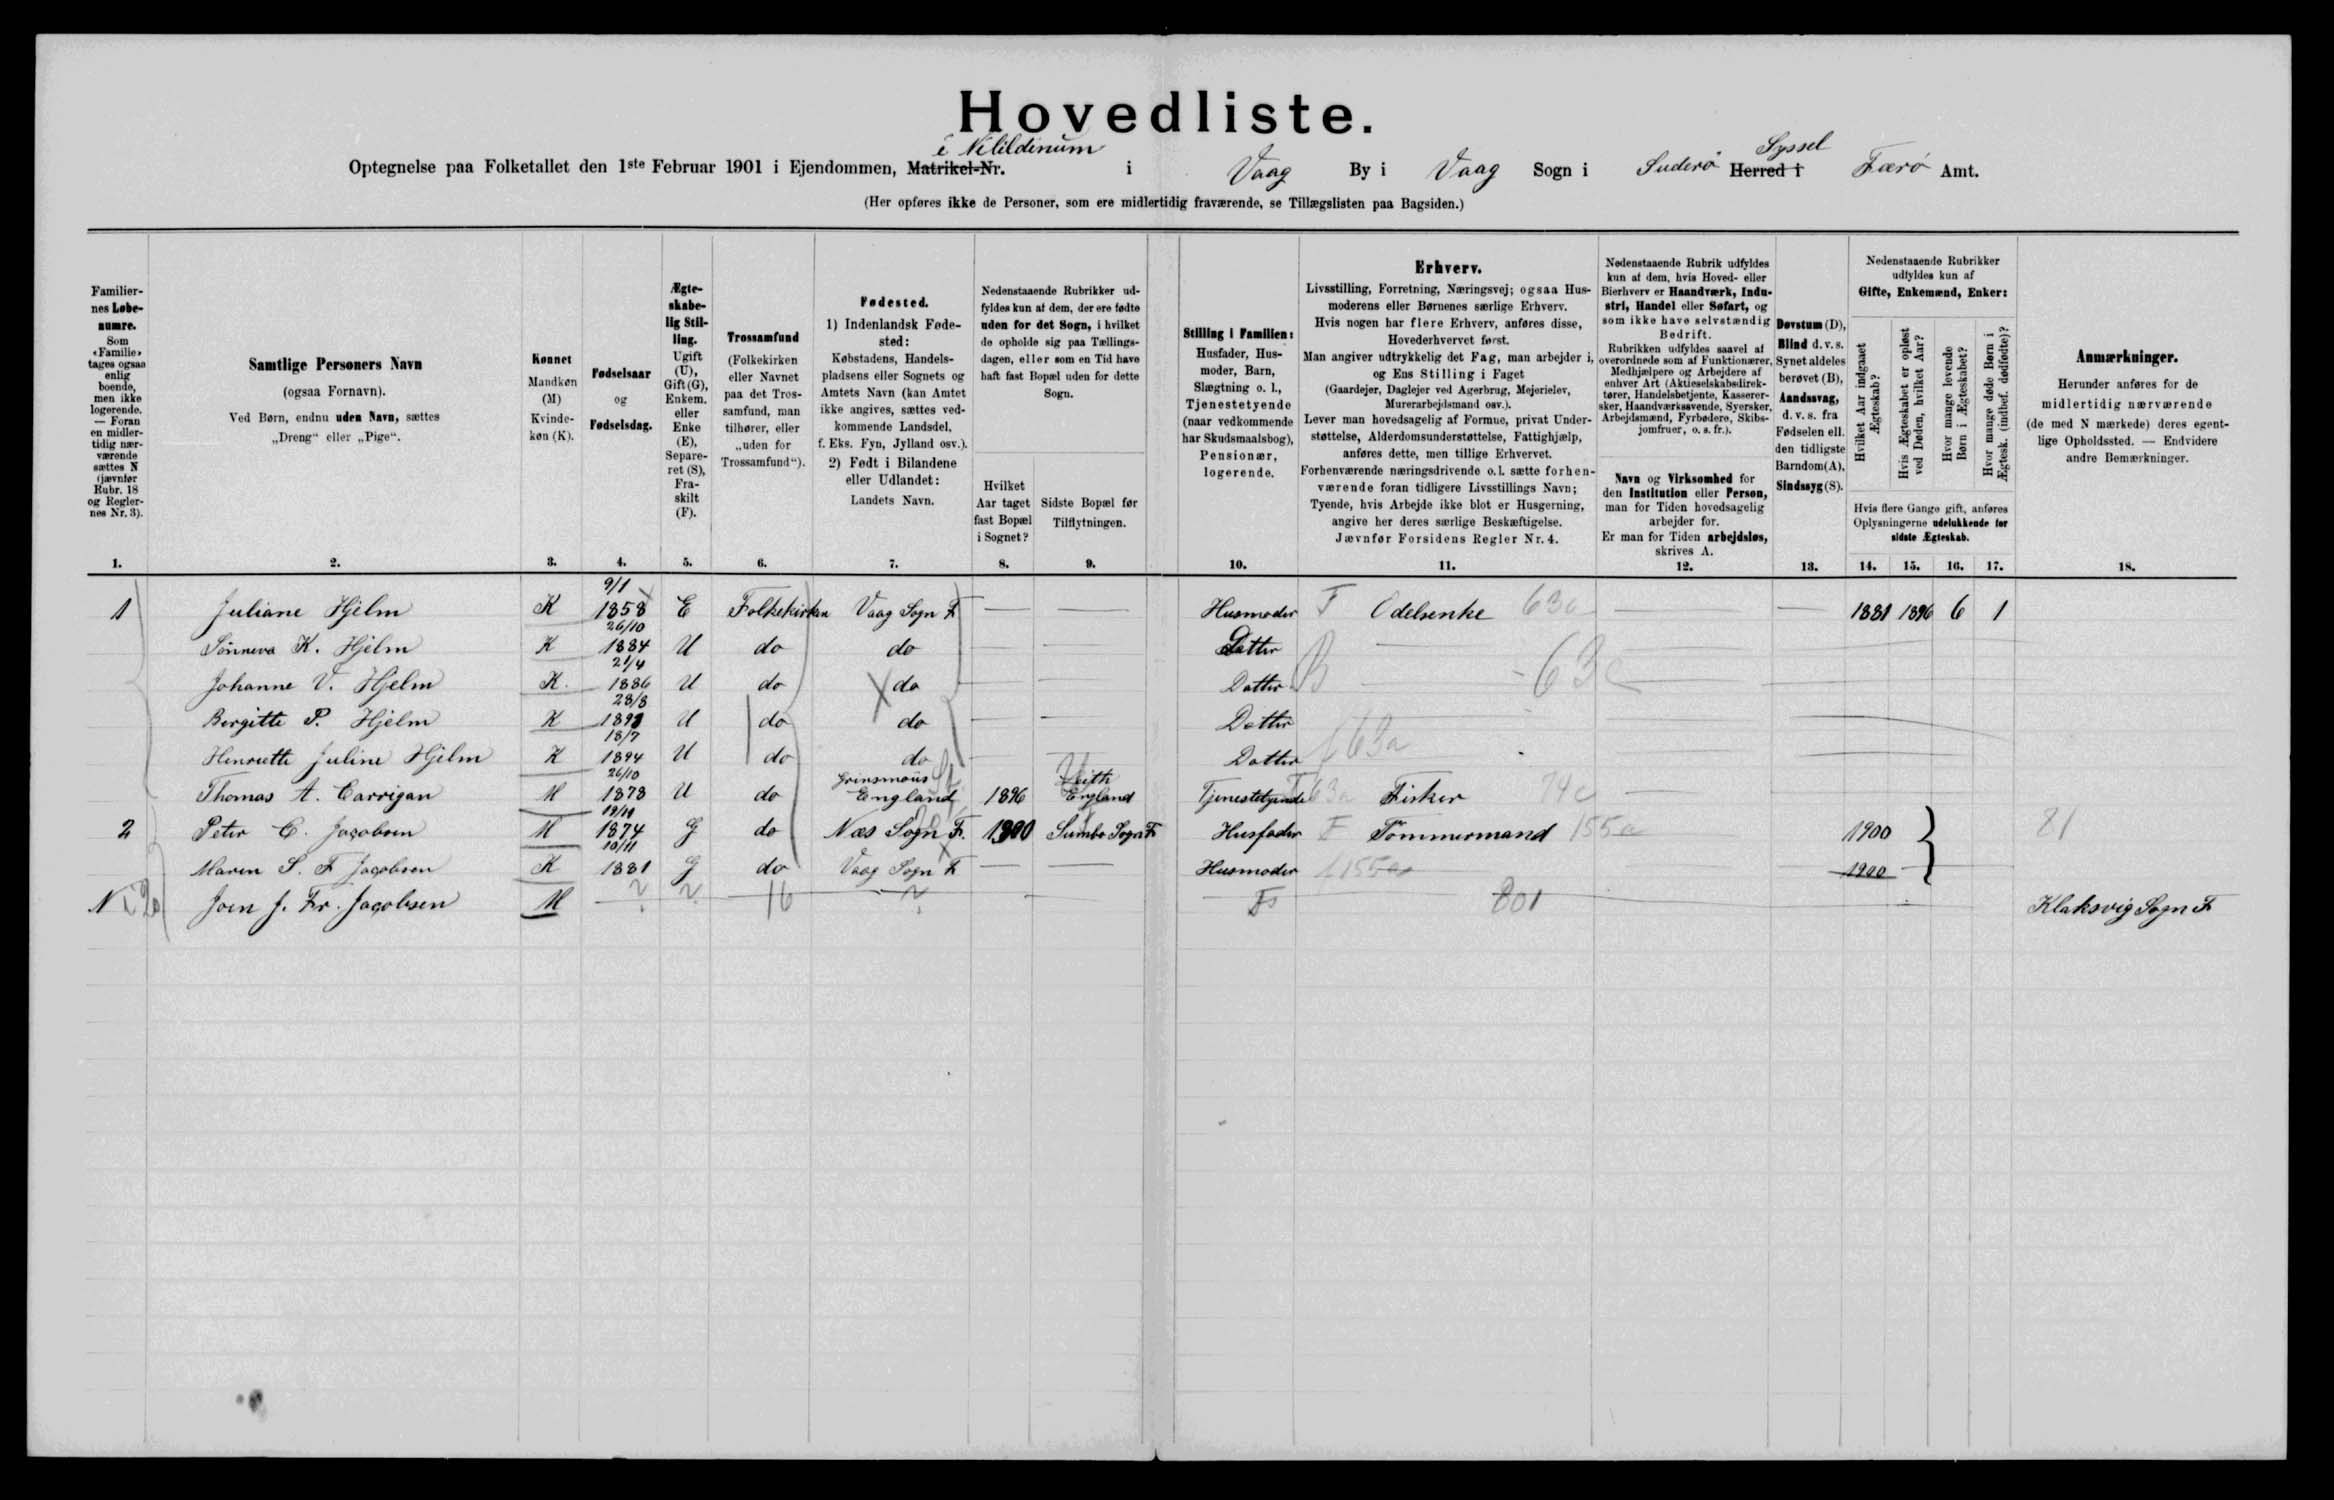 Hovedliste.
Optegnelse paa Folketallet den 1ste Februar 1901 i Ejendommen, Matrikel-Nr. i Vaag By i Vaag Sogn i Suderø Herred i Syssel Færø Amt.
(Her opføres ikke de Personer, som ere midlertidig fraværende, se Tillægslisten paa Bagsiden.)
Familier-
nes Løbe-
numre.
Som
«Familie»
tages ogsaa
enlig
boende,
men ikke
logerende.
— Foran
en midler-
tidig nær-
værende
sættes N
(jævnfør
Rubr. 18
og Regler-
nes Nr. 3).
Samtlige Personers Navn
(ogsaa Fornavn).
Ved Børn, endnu uden Navn, sættes
„Dreng“ eller „Pige“.
Kønnet
Mandkøn
(M)
Kvinde-
køn (K).
Fødselsaar
og
Fødselsdag.
Ægte-
skabe-
lig Stil-
ling.
Ugift
(U),
Gift (G),
Enkem.
eller
Enke
(E),
Separe-
ret (S),
Fra-
skilt
(F).
Trossamfund
(Folkekirken
eller Navnet
paa det Tros-
samfund, man
tilhører, eller
„uden for
Trossamfund“).
Fødested.
1) Indenlandsk Føde-
sted:
Købstadens, Handels-
pladsens eller Sognets og
Amtets Navn (kan Amtet
ikke angives, sættes ved-
kommende Landsdel,
f. Eks. Fyn, Jylland osv.).
2) Født i Bilandene
eller Udlandet:
Landets Navn.
Nedenstaaende Rubrikker ud-
fyldes kun af dem, der ere fødte
uden for det Sogn, i hvilket
de opholde sig paa Tællings-
dagen, eller som en Tid have
haft fast Bopæl uden for dette
Sogn.
Hvilket
Aar taget
fast Bopæl
i Sognet?
Sidste Bopæl før
Tilflytningen.
Stilling i Familien:
Husfader, Hus-
moder, Barn,
Slægtning o. l.,
Tjenestetyende
(naar vedkommende
har Skudsmaalsbog),
Pensionær,
logerende.
Erhverv.
Livsstilling, Forretning, Næringsvej; ogsaa Hus-
moderens eller Børnenes særlige Erhverv.
Hvis nogen har flere Erhverv, anføres disse,
Hovederhvervet først.
Man angiver udtrykkelig det Fag, man arbejder i,
og Ens Stilling i Faget
(Gaardejer, Daglejer ved Agerbrug, Mejerielev,
Murerarbejdsmand osv.).
Lever man hovedsagelig af Formue, privat Under-
støttelse, Alderdomsunderstøttelse, Fattighjælp,
anføres dette, men tillige Erhvervet.
Forhenværende næringsdrivende o. l. sætte forhen-
værende foran tidligere Livsstillings Navn;
Tyende, hvis Arbejde ikke blot er Husgerning,
angive her deres særlige Beskæftigelse.
Jævnfør Forsidens Regler Nr. 4.
Nedenstaaende Rubrik udfyldes
kun af dem, hvis Hoved- eller
Bierhverv er Haandværk, Indu-
stri, Handel eller Søfart, og
som ikke have selvstændig
Bedrift.
Rubrikken udfyldes saavel af
overordnede som af Funktionærer,
Medhjælpere og Arbejdere af
enhver Art (Aktieselskabsdirek-
tører, Handelsbetjente, Kasserer-
sker, Haandværkssvende, Syersker,
Arbejdsmænd, Fyrbødere, Skibs-
jomfruer, o. s. fr.).
Navn og Virksomhed for
den Institution eller Person,
man for Tiden hovedsagelig
arbejder for.
Er man for Tiden arbejdsløs,
skrives A.
Døvstum (D),
Blind d. v. s.
Synet aldeles
berøvet (B),
Aandssvag,
d. v. s. fra
Fødselen ell.
den tidligste
Barndom (A),
Sindssyg (S).
Nedenstaaende Rubrikker
udfyldes kun af
Gifte, Enkemænd, Enker:
Hvilket Aar indgaaet
Ægteskab?
Hvis Ægteskabet er opløst
ved Døden, hvilket Aar?
Hvor mange levende
Børn i Ægteskabet?
Hvor mange døde Børn i
Ægtesk. (indbef. dødfødte)?
Hvis flere Gange gift, anføres
Oplysningerne udelukkende for
sidste Ægteskab.
Anmærkninger.
Herunder anføres for de
midlertidig nærværende
(de med N mærkede) deres egent-
lige Opholdssted. — Endvidere
andre Bemærkninger.
1. 2. 3. 4. 5. 6. 7. 8. 9. 10. 11. 12. 13. 14. 15. 16. 17. 18.
1 Juliane Hjelm K 9/1 1858 E Folkekirken Vaag Sogn F — — Husmoder F Odelsenke 63a — — 1881 1896 6 1
Sünneva K. Hjelm K 26/10 1884 U do do Datter
Johanne V. Hjelm K. 21/4 1886 U do do Datter B 63c
Bergitte P. Hjelm K 28/8 U do do Datter
Henriette Juline Hjelm K 18/7 1894 U do do Datter 63a
Thomas A. Carrigan M 26/10 1878 U do England 1896 Leith England Tjenestetyende 63a Fisker 74c
2 Peter C. Jacobsen M 1874 G do Næs Sogn F. 1900 Sumbø Sogn F Husfader F Tømmermand 155a 1900 81
Maren S. F Jacobsen K 10/11 1881 G do Vaag Sogn F — — Husmoder 155a 1900
N Joen J. Fr. Jacobsen M ? ? 16 ? 801 Klaksvig Sogn F